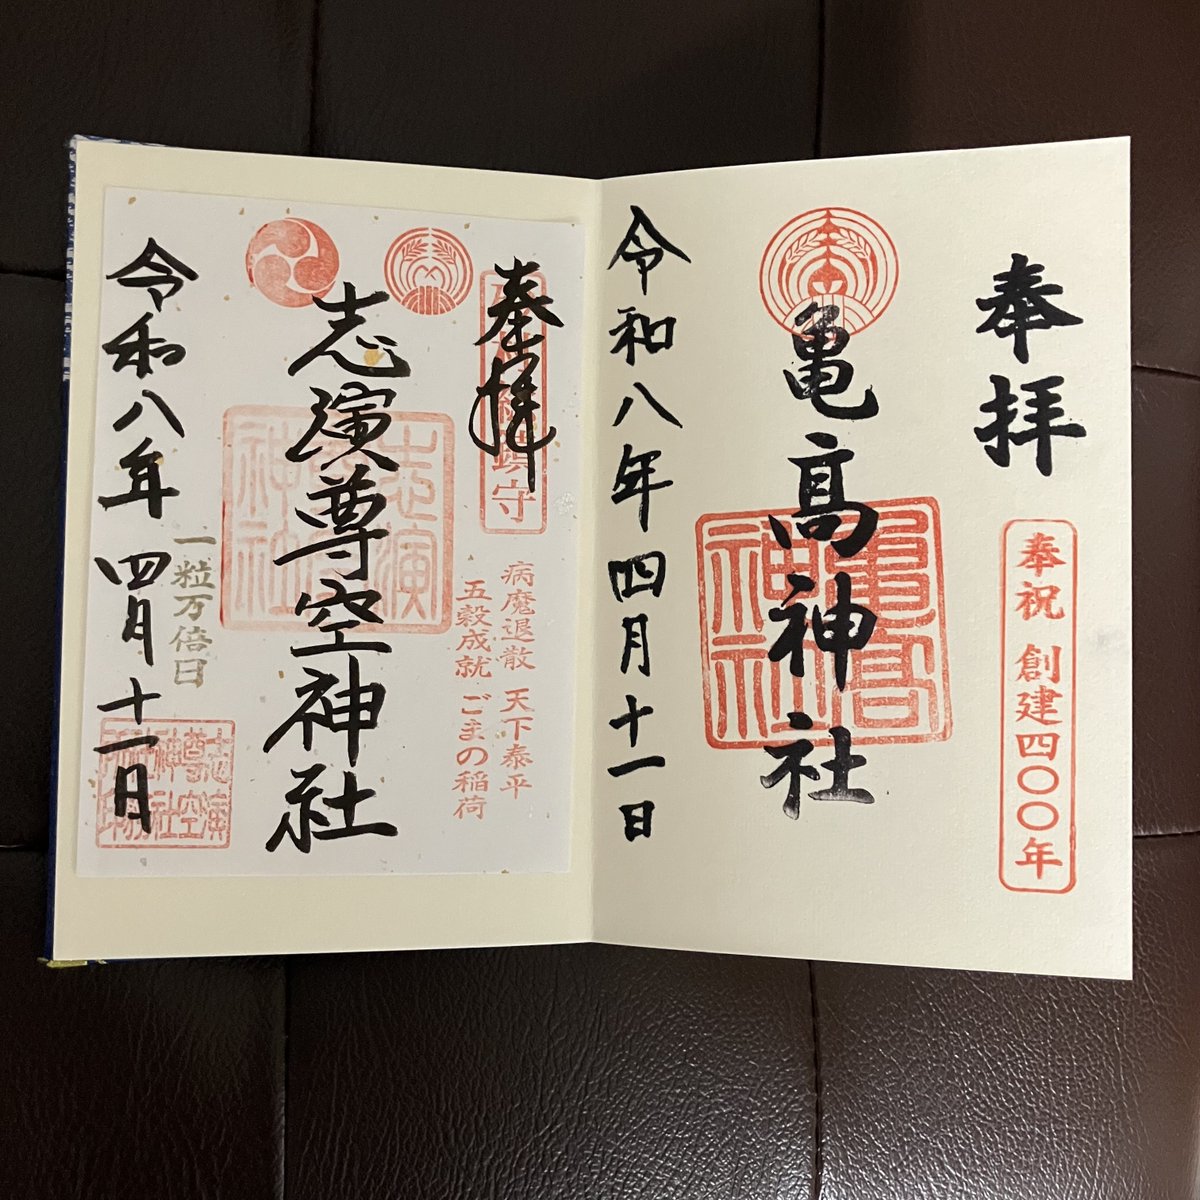 奉拝
奉祝 創建四〇〇年
亀高神社
亀高神社
令和八年四月十一日
奉拝
鎮守
病魔退散 天下泰平
五穀成就 ごまの稲荷
志演尊空神社
一粒万倍日
令和八年四月十一日